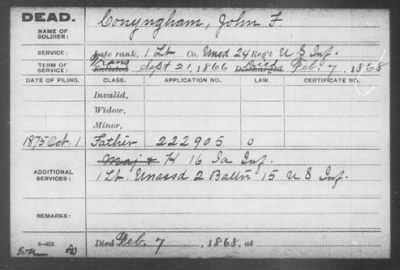 DEAD.
NAME OF SOLDIER:
Conyngham, John F
SERVICE:
Late rank, 1 Lt Co. Unsd 24 Reg't U S Inf.
TERM OF SERVICE
Trans
Enlisted Sept 21, 1866
Died
Discharged Feb. 7, 1868
DATE OF FILING. CLASS. APPLICATION NO. LAW. CERTIFICATE NO.
Invalid,
Widow,
Minor,
1875 Oct. 1 Father 222905 0
ADDITIONAL SERVICES:
Maj & H 16 Ia Inf.
1 Lt. Unassd 2 Batt'n 15 U S Inf.
REMARKS:
Died Feb. 7, 1868, at